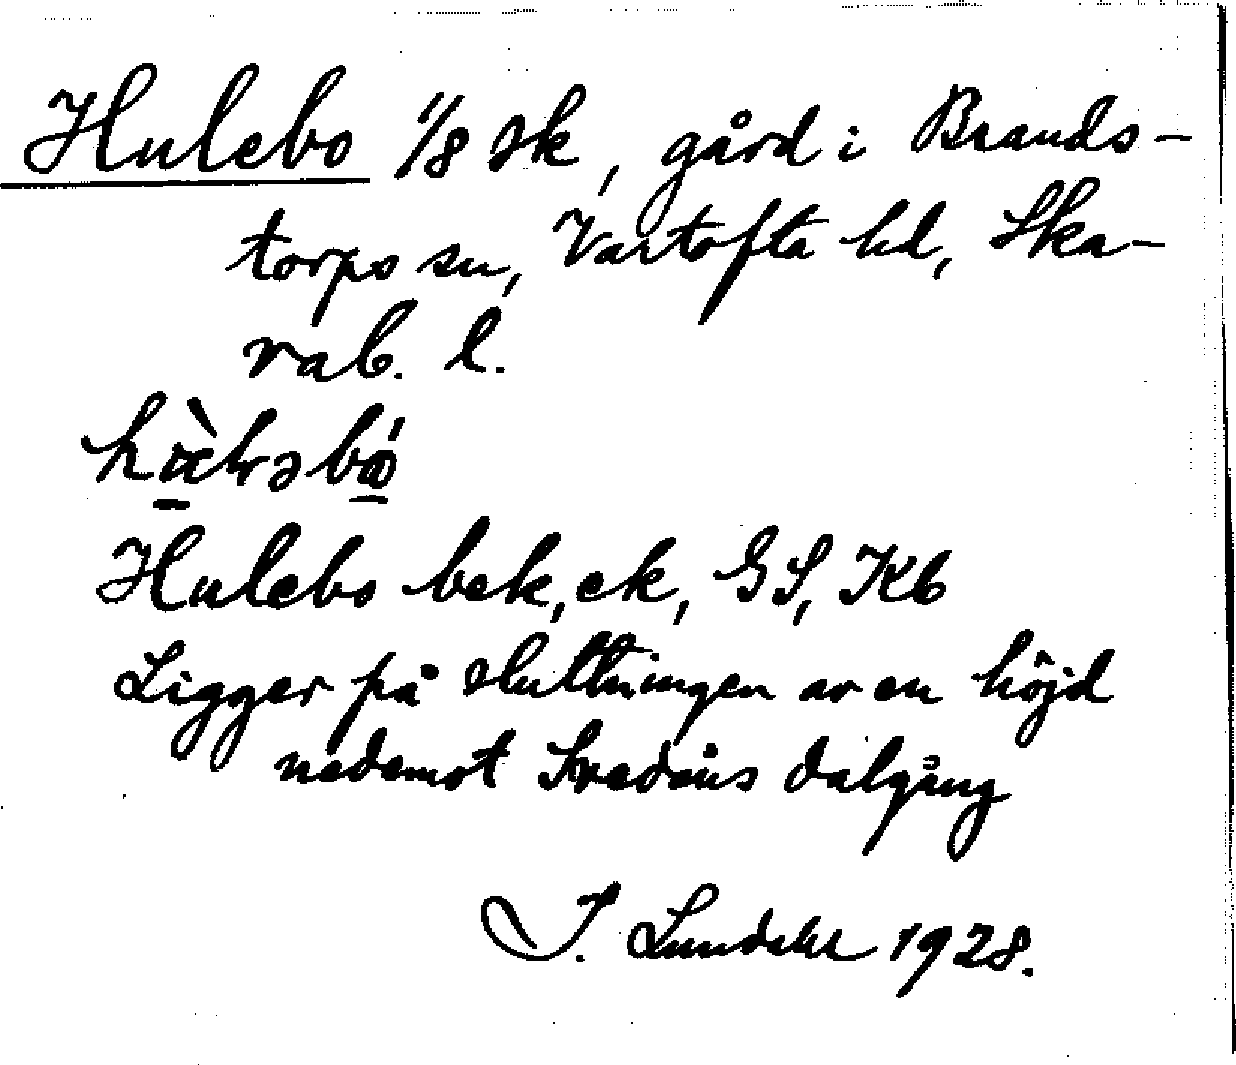 Hulebo 1/8 sk, gård i Brands-
torps sn, Vartofta hd, Ska-
rab. l.
Hulebo bek, ek, GS, Kb
Ligger på sluttningen av en höjd
nedemot Svedåns dalgång
I. Lundahl 1928.